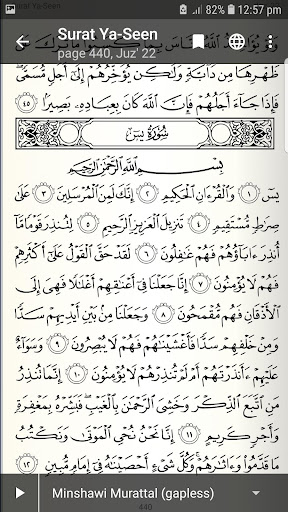 Surat Ya-Seen
12:57 pm
Surat Ya-Seen
page 440, Juz' 22
وَلَوْ يُؤَاخِذُ ٱللَّهُ ٱلنَّاسَ بِمَا كَسَبُوا۟ مَا تَرَكَ عَلَىٰ
ظَهْرِهَا مِن دَآبَّةٍ وَلَٰكِن يُؤَخِّرُهُمْ إِلَىٰٓ أَجَلٍ مُّسَمًّى
فَإِذَا جَآءَ أَجَلُهُمْ فَإِنَّ ٱللَّهَ كَانَ بِعِبَادِهِۦ بَصِيرًۢا ٤٥
سُورَةُ يسٓ
بِسْمِ ٱللَّهِ ٱلرَّحْمَٰنِ ٱلرَّحِيمِ
يسٓ ١ وَٱلْقُرْءَانِ ٱلْحَكِيمِ ٢ إِنَّكَ لَمِنَ ٱلْمُرْسَلِينَ ٣ عَلَىٰ
صِرَٰطٍ مُّسْتَقِيمٍ ٤ تَنزِيلَ ٱلْعَزِيزِ ٱلرَّحِيمِ ٥ لِتُنذِرَ قَوْمًا مَّآ
أُنذِرَ ءَابَآؤُهُمْ فَهُمْ غَٰفِلُونَ ٦ لَقَدْ حَقَّ ٱلْقَوْلُ عَلَىٰٓ أَكْثَرِهِمْ
فَهُمْ لَا يُؤْمِنُونَ ٧ إِنَّا جَعَلْنَا فِىٓ أَعْنَٰقِهِمْ أَغْلَٰلًا فَهِىَ إِلَى
ٱلْأَذْقَانِ فَهُم مُّقْمَحُونَ ٨ وَجَعَلْنَا مِنۢ بَيْنِ أَيْدِيهِمْ سَدًّا
وَمِنْ خَلْفِهِمْ سَدًّا فَأَغْشَيْنَٰهُمْ فَهُمْ لَا يُبْصِرُونَ ٩ وَسَوَآءٌ
عَلَيْهِمْ ءَأَنذَرْتَهُمْ أَمْ لَمْ تُنذِرْهُمْ لَا يُؤْمِنُونَ ١٠ إِنَّمَا تُنذِرُ
مَنِ ٱتَّبَعَ ٱلذِّكْرَ وَخَشِىَ ٱلرَّحْمَٰنَ بِٱلْغَيْبِ فَبَشِّرْهُ بِمَغْفِرَةٍ
وَأَجْرٍ كَرِيمٍ ١١ إِنَّا نَحْنُ نُحْىِ ٱلْمَوْتَىٰ وَنَكْتُبُ
مَا قَدَّمُوا۟ وَءَاثَٰرَهُمْ وَكُلَّ شَىْءٍ أَحْصَيْنَٰهُ فِىٓ إِمَامٍ مُّبِينٍ ١٢
Minshawi Murattal (gapless)
440